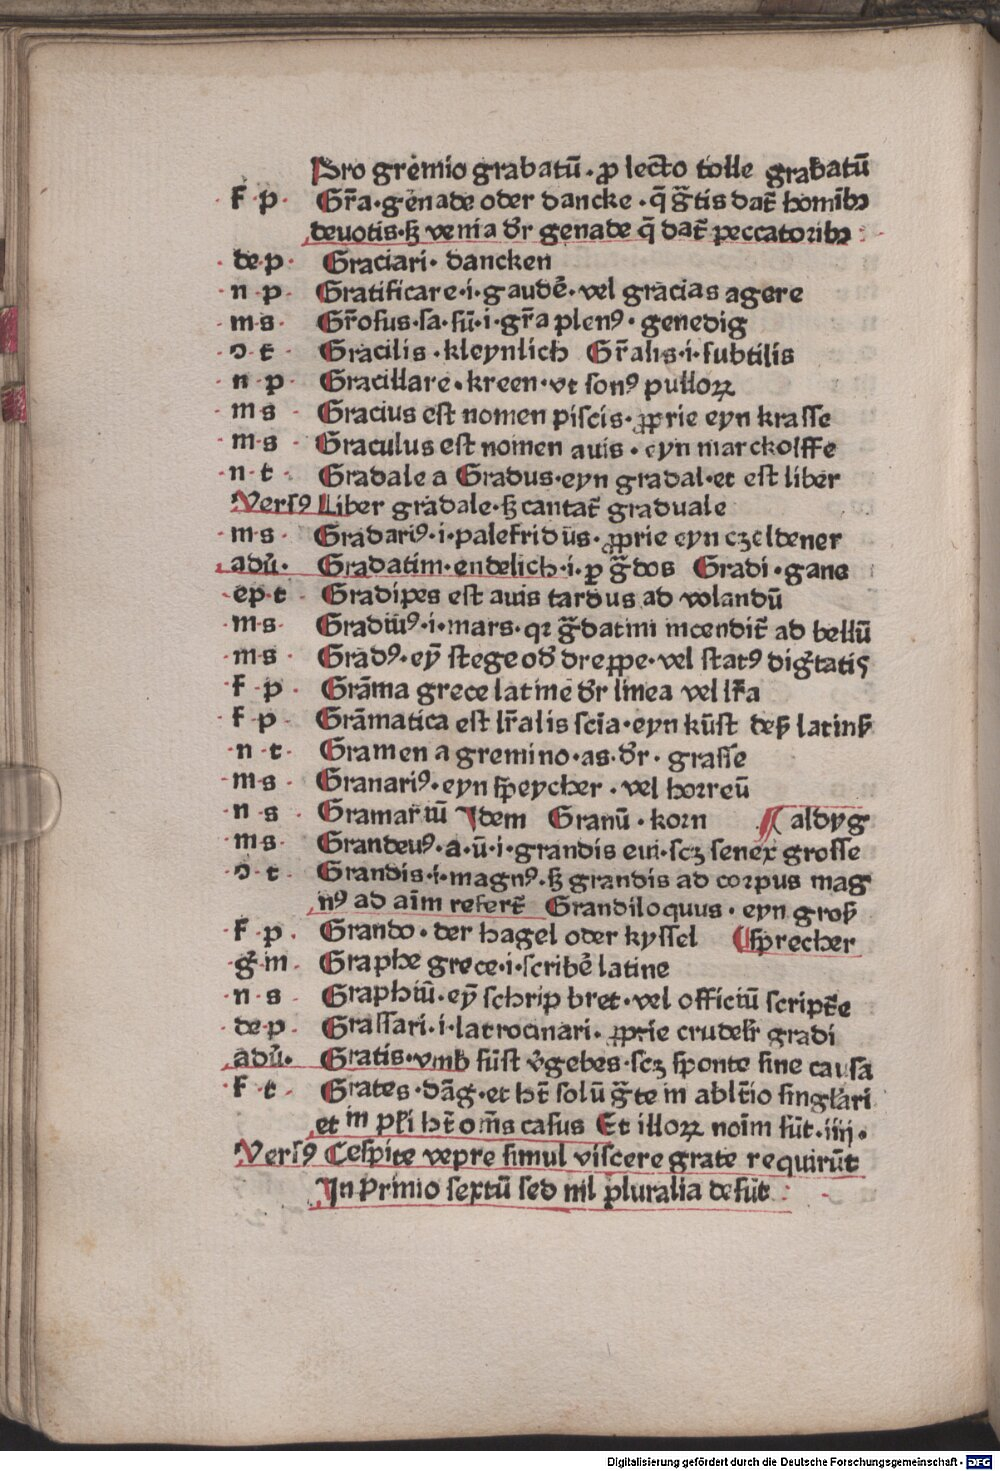 Pro gremio grabatū · ꝓ lecto tolle grabatū
· f · p · Gr̄a · genade oder dancke · q̄ gͣtis dat᷑ homībꝫ
deuotis · sꝫ venia dr̄ genade q̄ dat᷑ peccatoribꝫ
· de·p · Graciari · dancken
· n · p · Gratificare · i · gaudē · vel gracias agere
· m·s · Gr̄osus · sa · sū · i · gr̄a plenꝰ · genedig
· o · t · Gracilis · kleynlich Gr̄alis · i · subtilis
· n · p · Gracillare · kreen · vt sonꝰ pulloꝝ
· m·s · Gracius est nomen piscis · ꝓprie eyn krasse
· m·s · Graculus est nomen auis · eyn marckolffe
· n · t · Gradale a Gradus · eyn gradal · et est liber
Versꝰ Liber gradale · sꝫ cantat᷑ graduale
· m·s · Gradariꝰ · i · palefridus · ꝓprie eyn czeldener
· adū · Gradatim · endelich · i · ꝑ gͣdos Gradi · gane
· ep·t · Gradipes est auis tardus ad volandū
· m·s · Gradiuꝰ · i · mars · qꝛ gͣdatim incendit᷑ ad bellū
· m·s · Gradꝰ · eȳ stege od᷑ dreppe · vel statꝰ dig᷑tatis
· f · p · Grāma grece latine dr̄ linea vel lr̄a
· f · p · Grāmatica est lr̄alis scīa · eyn kūst deß latinß
· n · t · Gramen a gremino · as · dr̄ · grasse
· m·s · Granariꝰ · eyn speycher · vel horreū
· n · s · Gramariū Idem Granū · korn aldyg
· m·s · Grandeuꝰ · a · ū · i · grandis eui · scꝫ senex grosse
· o · t · Grandis · i · magnꝰ · sꝫ grandis ad corpus mag
nꝰ ad aīm refert᷑ Grandiloquus · eyn groß
· f · p · Grando · der hagel oder kyssel sprecher
· g᷑·m · Graphe grece · i · scribē latine
· n · s · Graphiū · eȳ schrip bret · vel officiū script᷑e
· de·p · Grassari · i · latrocinari · ꝓprie crudelr̄ gradi
· adū · Gratis · vmb sūst v᷑gebes · scꝫ sponte sine causa
· f · t · Grates · dāg · et ht᷑ solū gͣte in ablt᷑io singl᷑ari
et in pl᷑i ht᷑ om̄s casus Et illoꝝ noīm sūt · iiij ·
Versꝰ Cespite vepre simul viscere grate requirūt
In Primo sextū sed nil pluralia desūt
Digitalisierung gefördert durch die Deutsche Forschungsgemeinschaft - DFG